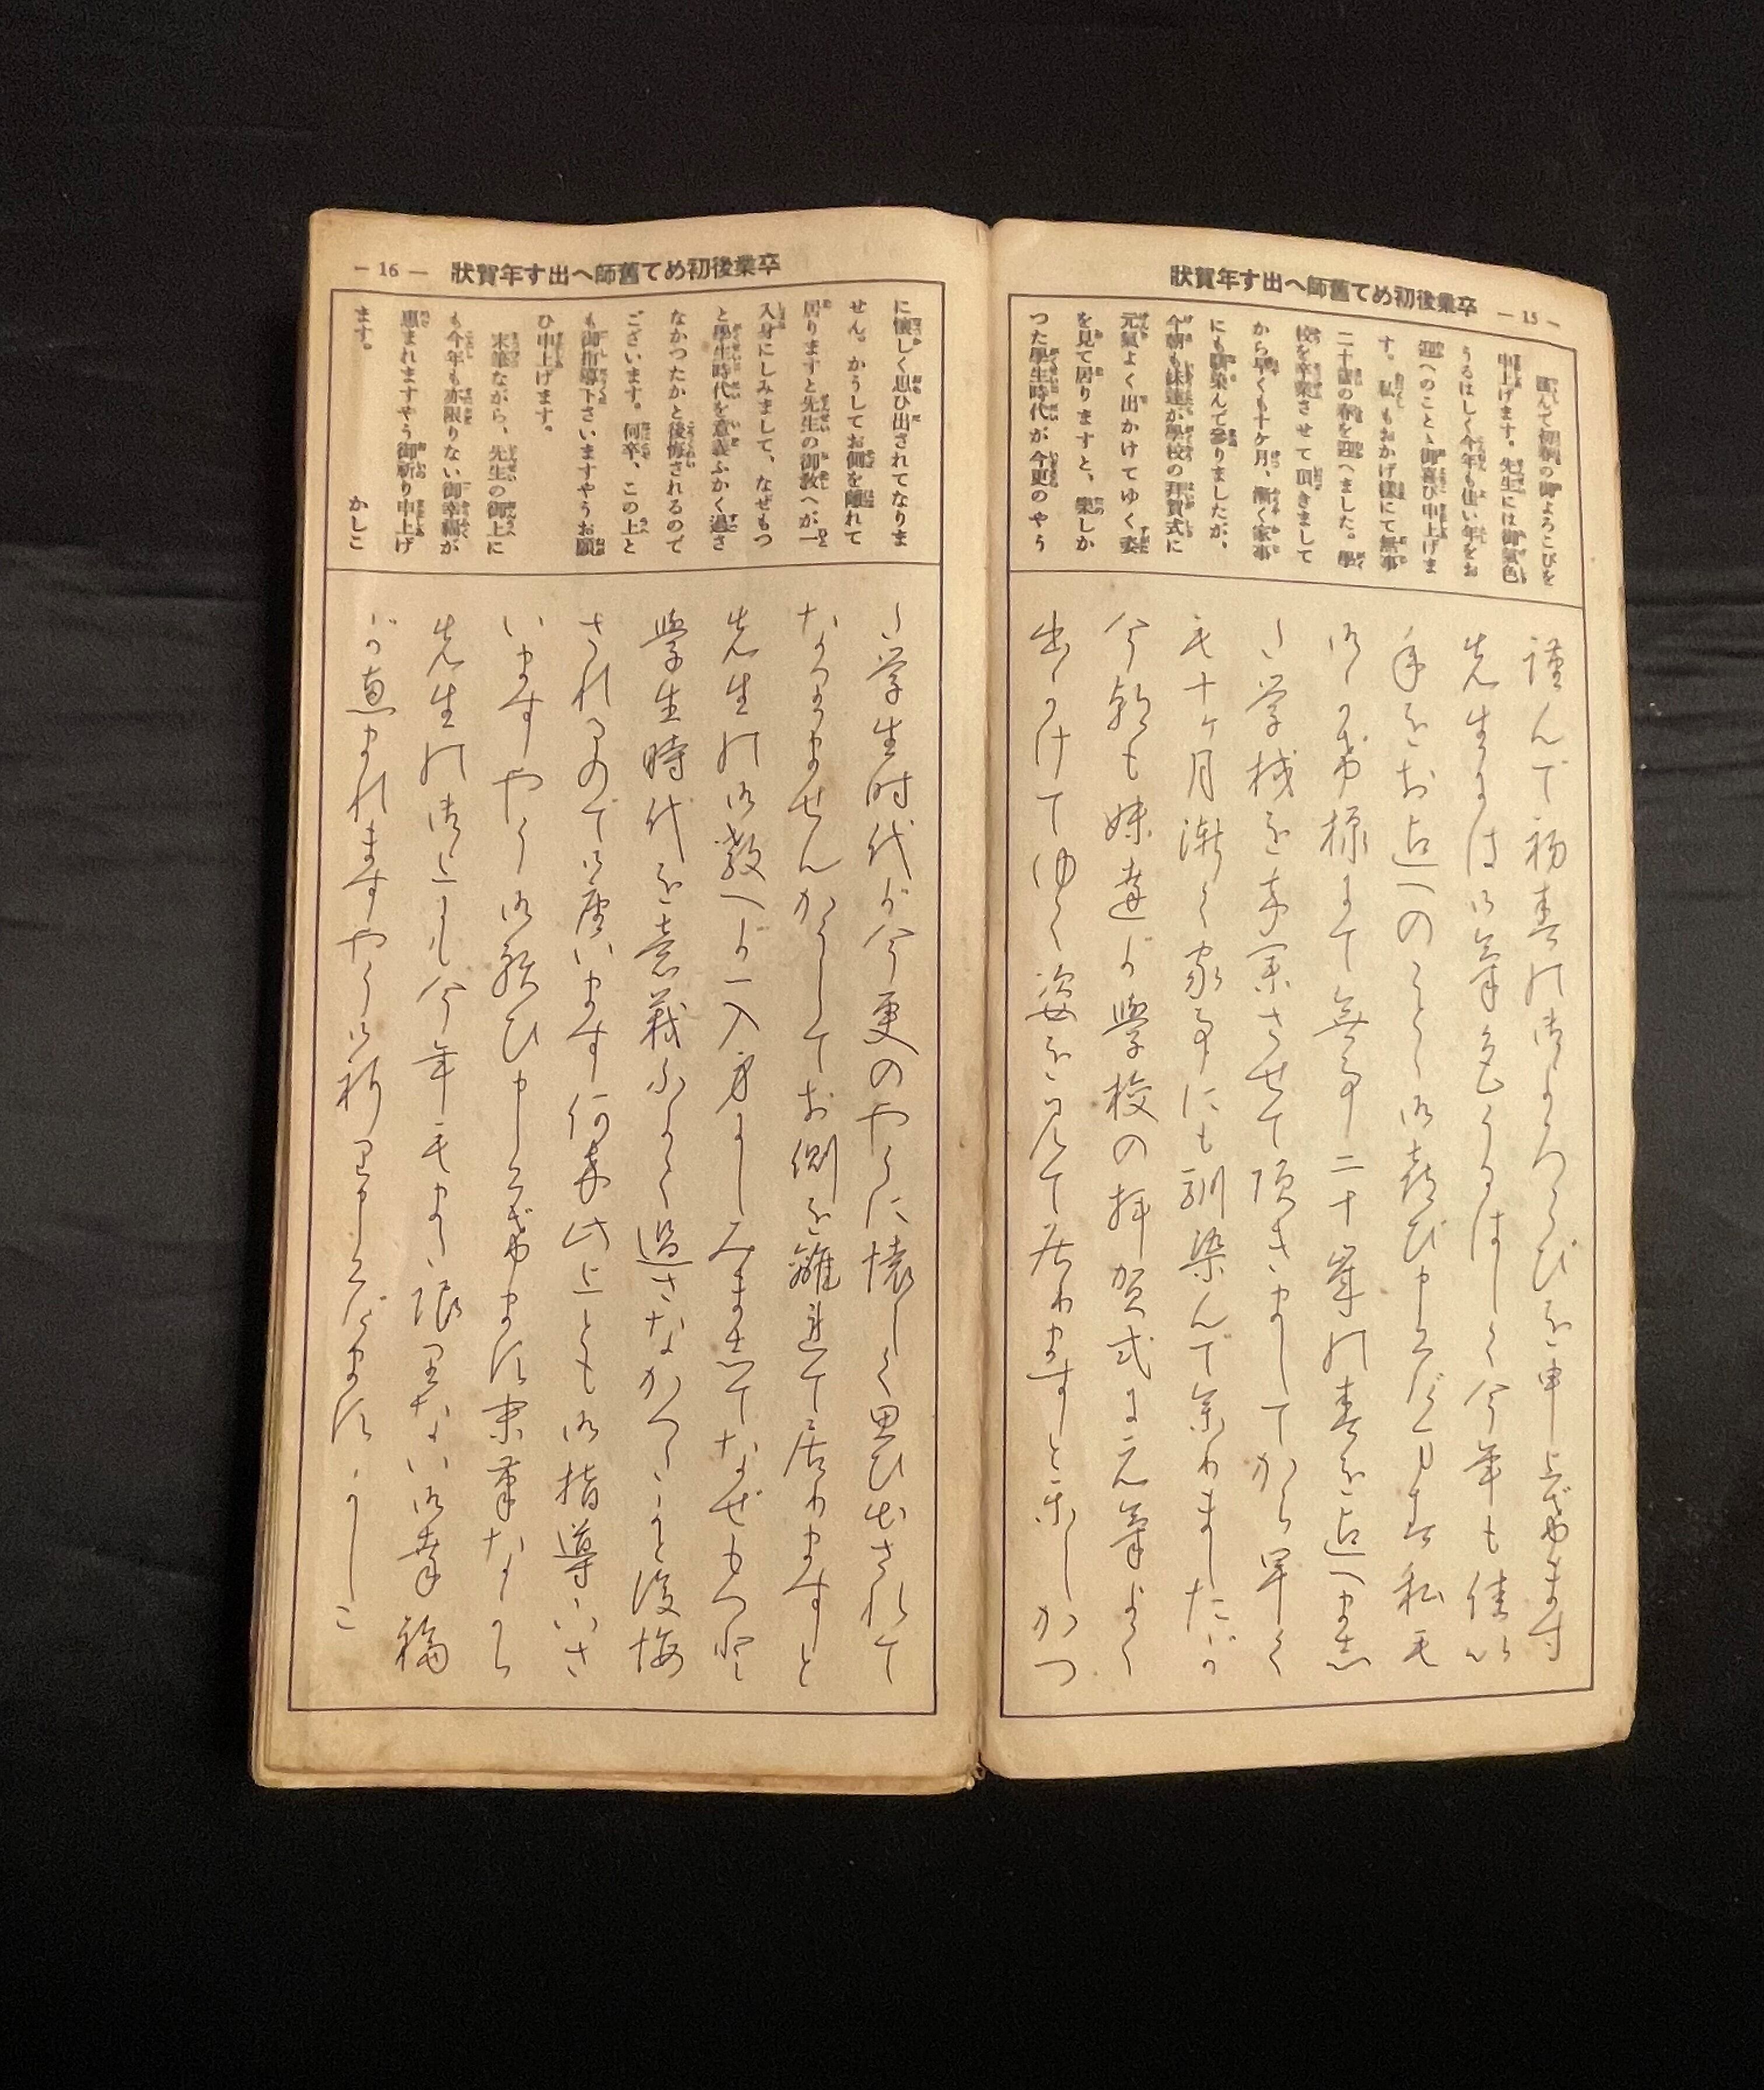 卒業後初めて舊師へ出す年賀狀
— 15 —
謹んで初春の御よろこびを
申上げます。先生には御氣色
うるはしく今年も佳い年をお
迎へのことゝ御喜び申上げま
す。私もおかげ樣にて無事
二十歲の春を迎へました。學
校を卒業させて頂きまして
から早くも十ケ月、漸く家事
にも馴染んで參りましたが、
今朝も妹達が學校の拜賀式に
元氣よく出かけてゆく姿
を見て居りますと、樂しか
つた學生時代が今更のやう
謹んで初春の御よろこびを申上げます
先生には御氣色うるはしく今年も佳い
年をお迎へのことゝ御喜び申上げます私も
御かげ様にて無事二十歳の春を迎へまし
た学校を卒業させて頂きましてから早く
も十ヶ月漸く家事にも馴染んで参りましたが
今朝も妹達が學校の拝賀式に元氣よく
出かけてゆく姿を見て居りますと樂しかつ
卒業後初めて舊師へ出す年賀狀
— 16 —
に懷しく思ひ出されてなりま
せん。かうしてお側を離れて
居りますと先生の御敎へが一
入身にしみまして、なぜもつ
と學生時代を意義ふかく過さ
なかつたかと後悔されるので
ございます。何卒、この上と
も御指導下さいますやうお願
ひ申上げます。
末筆ながら、先生の御上に
も今年も亦限りない御幸福が
惠まれますやう御祈り申上げ
ます。
かしこ
た学生时代が今更のやうに懐しく思ひ出されて
なりませんかうしてお側を離れて居りますと
先生の御教へが一入身にしみましてなぜもつと
學生時代を意義ふかく過さなかつたかと後悔
されるので御座います何卒此上とも御指導下さ
いますやう御願ひ申上げます末筆ながら
先生の御上にも今年もまた限りない御幸福
が恵まれますやう御祈り申上げます かしこ